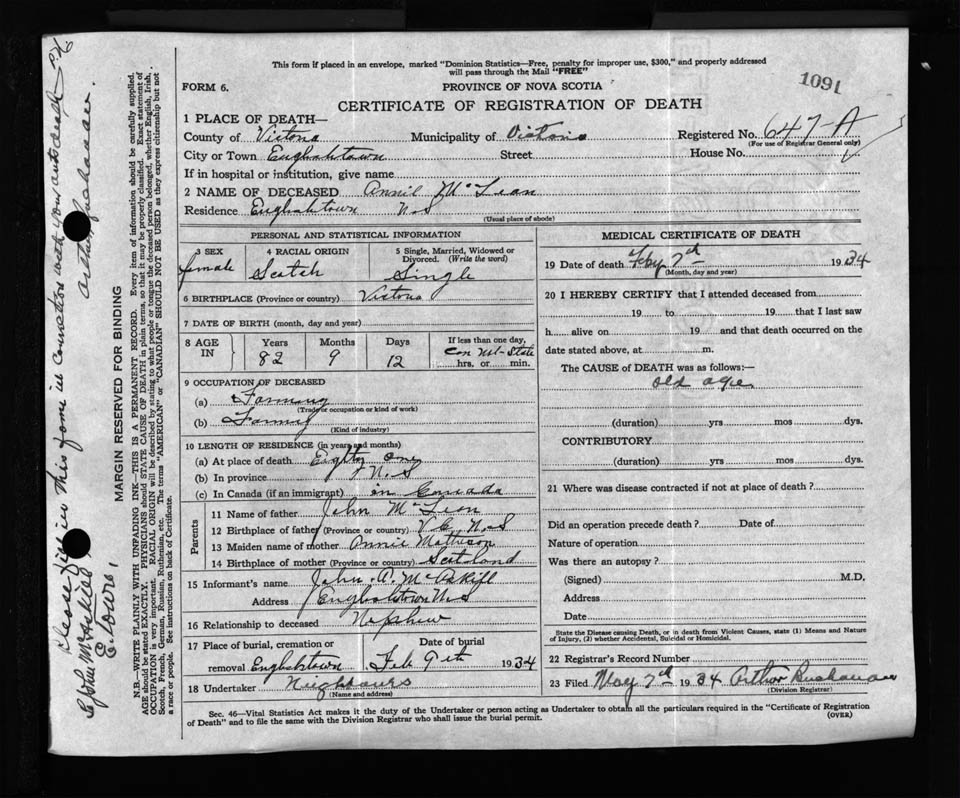 This form if placed in an envelope, marked "Dominion Statistics—Free, penalty for improper use, $300," and properly addressed
will pass through the Mail "FREE"
1091
FORM 6.
PROVINCE OF NOVA SCOTIA
CERTIFICATE OF REGISTRATION OF DEATH
1 PLACE OF DEATH—
County of Victoria Municipality of Victoria Registered No. 647-A
(For use of Registrar General only)
City or Town Englishtown Street House No.
If in hospital or institution, give name
2 NAME OF DECEASED Annie McLean
Residence Englishtown N.S
(Usual place of abode)
PERSONAL AND STATISTICAL INFORMATION
3 SEX 4 RACIAL ORIGIN 5 Single, Married, Widowed or Divorced. (Write the word)
female Scotch Single
6 BIRTHPLACE (Province or country) Victoria
7 DATE OF BIRTH (month, day and year)
8 AGE IN Years Months Days If less than one day,
82 9 12 hrs. or min.
9 OCCUPATION OF DECEASED
(a) Farming
(Trade or occupation or kind of work)
(b) Farming
(Kind of industry)
10 LENGTH OF RESIDENCE (in years and months)
(a) At place of death Eighty one
(b) In province N.S
(c) In Canada (if an immigrant) in Canada
Parents
11 Name of father John McLean
12 Birthplace of father (Province or country) V.C. N.S
13 Maiden name of mother Annie Matheson
14 Birthplace of mother (Province or country) Scotland
15 Informant's name John A. McAskill
Address Englishtown N.S
16 Relationship to deceased Nephew
17 Place of burial, cremation or Date of burial
removal Englishtown Feb 9th 1934
18 Undertaker Neighbours
(Name and address)
MEDICAL CERTIFICATE OF DEATH
19 Date of death 1934
(Month, day and year)
20 I HEREBY CERTIFY that I attended deceased from
19 to 19 that I last saw
h alive on 19 and that death occurred on the
date stated above, at m.
The CAUSE of DEATH was as follows:—
old age
(duration) yrs mos dys.
CONTRIBUTORY
(duration) yrs mos dys.
21 Where was disease contracted if not at place of death?
Did an operation precede death? Date of
Nature of operation
Was there an autopsy?
(Signed) M.D.
Address
Date
State the Disease causing Death, or in death from Violent Causes, state (1) Means and Nature
of Injury, (2) whether Accidental, Suicidal or Homicidal.
22 Registrar's Record Number
23 Filed May 7th 1934 Arthur Buchanan
(Division Registrar)
Sec. 46—Vital Statistics Act makes it the duty of the Undertaker or person acting as Undertaker to obtain all the particulars required in the "Certificate of Registration
of Death" and to file the same with the Division Registrar who shall issue the burial permit.
(OVER)
MARGIN RESERVED FOR BINDING
N.B.—WRITE PLAINLY WITH UNFADING INK—THIS IS A PERMANENT RECORD. Every item of information should be carefully supplied.
AGE should be stated EXACTLY. PHYSICIANS should STATE CAUSE OF DEATH in plain terms, so that it may be properly classified. Exact statement of
OCCUPATION is very important. RACIAL ORIGIN will be described by stating to what people or tongue the deceased person belonged, whether English, Irish,
Scotch, French, German, Russian, Ruthenian, etc. The terms "AMERICAN" or "CANADIAN" SHOULD NOT BE USED as they express citizenship but not
a race or people. See instructions on back of Certificate.
John McAskill
Please fill in this form in connection with your aunt death
Arthur Buchanan